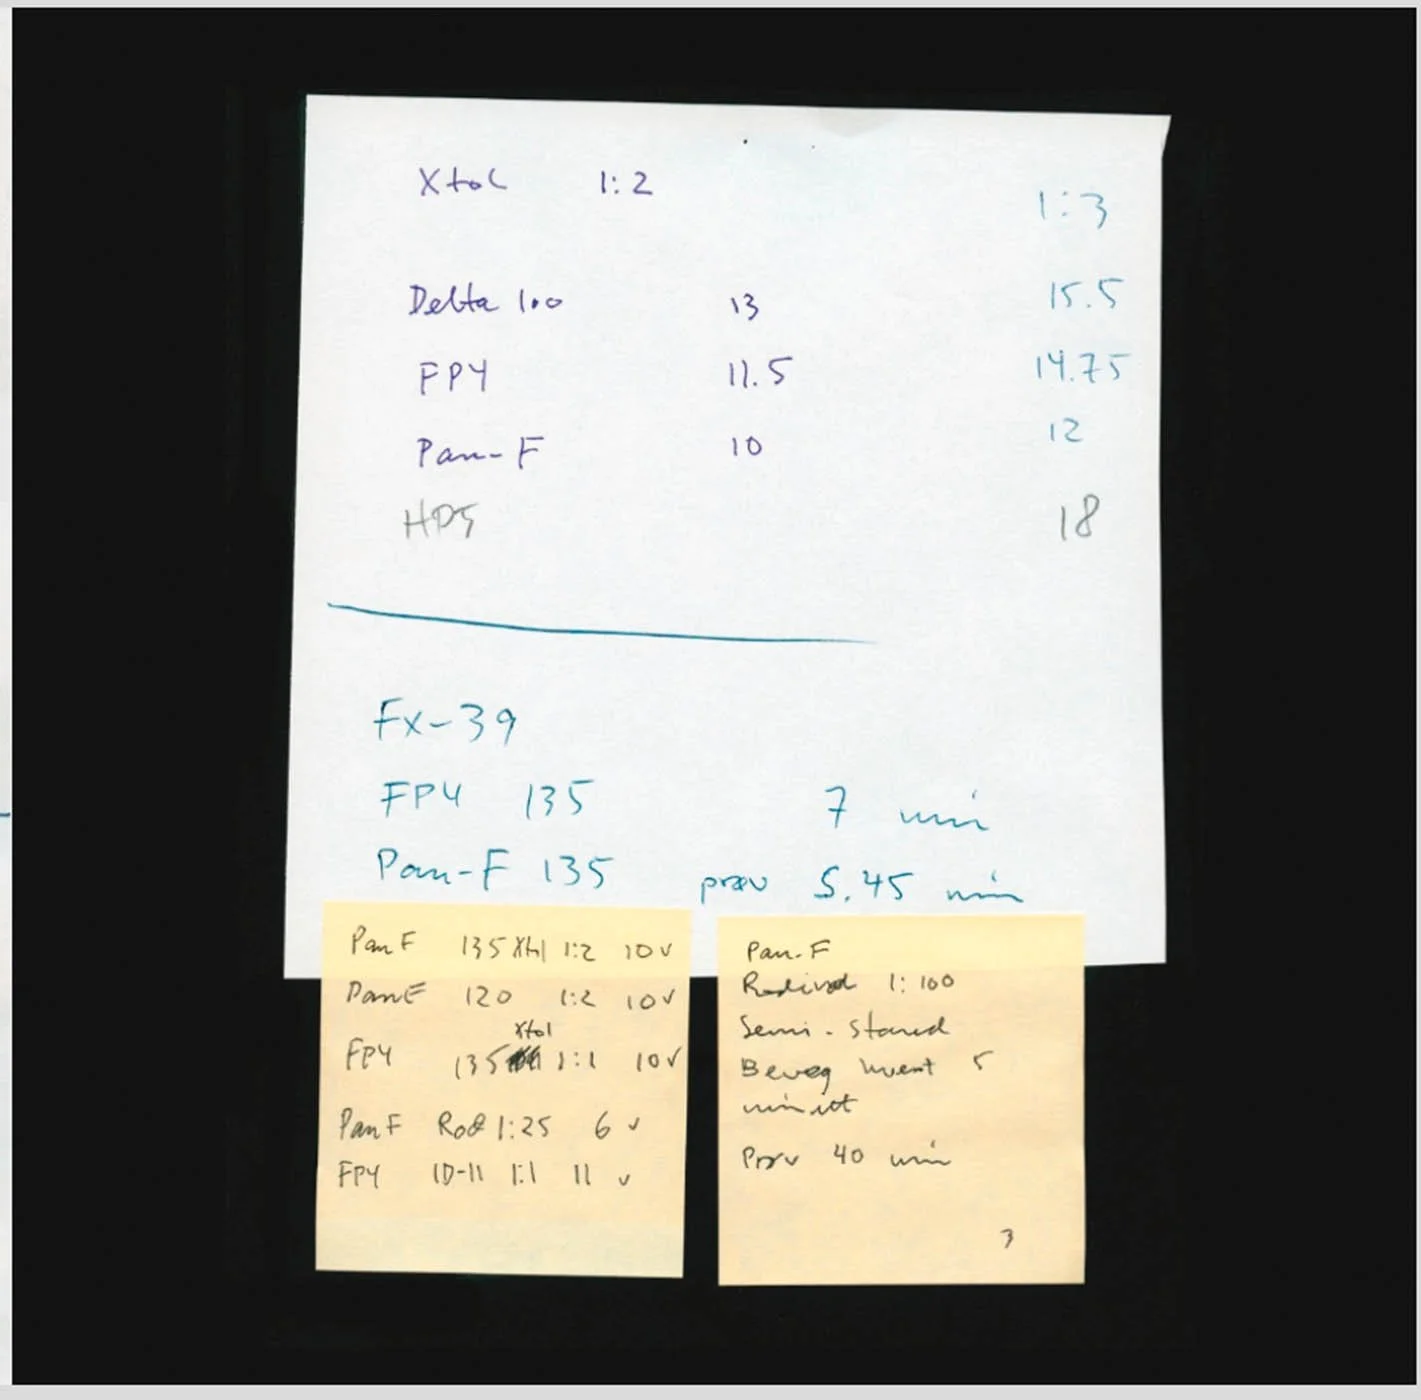 Xtol 1:2 1:3
Delta 100 13 15.5
FP4 11.5 14.75
Pan-F 10 12
HP5 18
Fx-39
FP4 135 7 min
Pan-F 135 prøv 5.45 min
Pan F 135 Xtol 1:2 10 v
Pan F 120 1:2 10 v
Xtol
FP4 135 1:1 10 v
Pan F Rod 1:25 6 v
FP4 ID-11 1:1 11 v
Pan-F
Rodinal 1:100
Semi-stand
Beveg hvert 5
minutt
Prøv 40 min
3